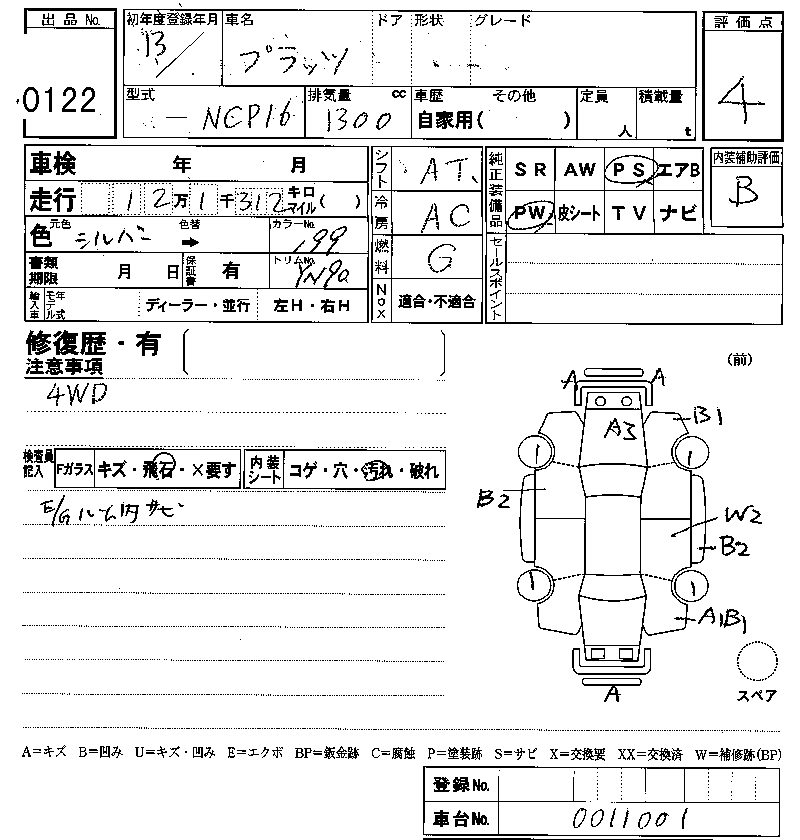 出品No. 0122
初年度登録年月 13/
車名 プラッツ
ドア 形状 グレード
評価点 4
型式 - NCP16
排気量 1300 cc
車歴 その他
自家用( )
定員 人
積載量 t
車検 年 月
走行 12万1千312 キロ マイル( )
色 元色 シルバー 色替 → カラーNo. 199
書類期限 月 日 保証書 有 トリムNo. YN90
輸入車 モデル年式 ディーラー・並行 左H・右H
シフト AT
冷房 AC
燃料 G
Nox 適合・不適合
純正装備品 SR AW PS エアB
PW 皮シート TV ナビ
内装補助評価 B
セールスポイント
修復歴・有
注意事項
4WD
検査員記入 Fガラス キズ・飛石・×要す 内装シート コゲ・穴・汚れ・破れ
E/Gルーム内サビ
(前)
A A
B1
A3
1 1
B2
W2
B2
1 1
A1B1
A
スペア
A=キズ B=凹み U=キズ・凹み E=エクボ BP=鈑金跡 C=腐蝕 P=塗装跡 S=サビ X=交換要 XX=交換済 W=補修跡(BP)
登録No.
車台No. 0011001